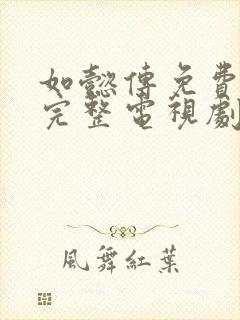 如懿傳免費
完整電視劇
風舞紅葉